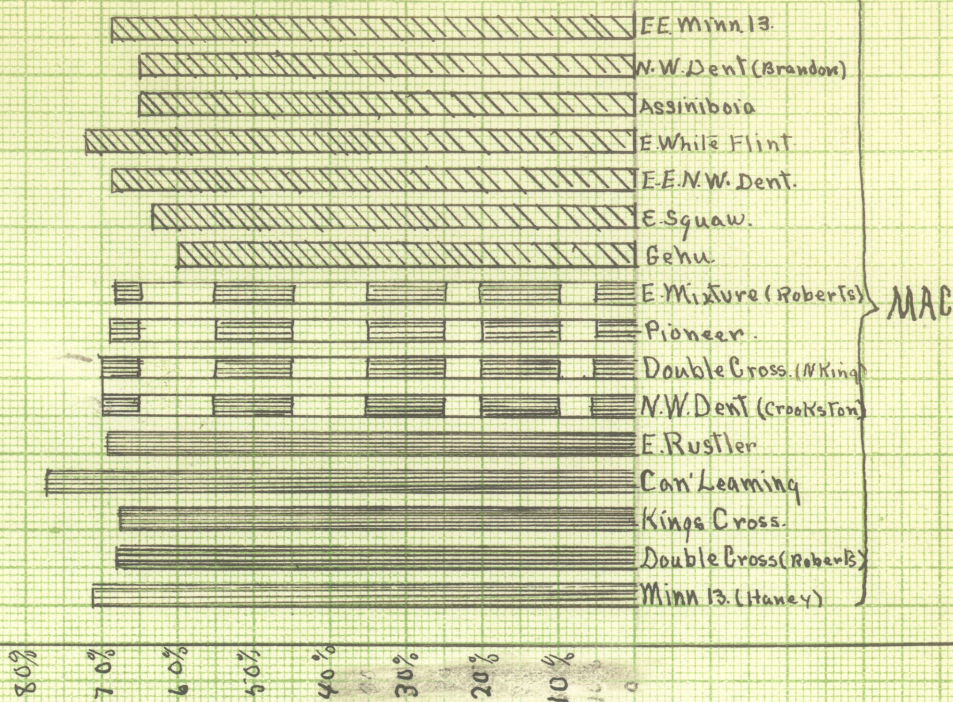 E.E. Minn 13.
N.W. Dent (Brandon)
Assiniboia
E. White Flint
E.E.N.W. Dent.
E. Squaw.
Gehu.
E. Mixture (Roberts)
Pioneer.
Double Cross. (N King)
N.W. Dent (Crookston)
E. Rustler
Can' Leaming
Kings Cross.
Double Cross (Roberts)
Minn 13. (Haney)
MAC
80% 70% 60% 50% 40% 30% 20% 10% 0